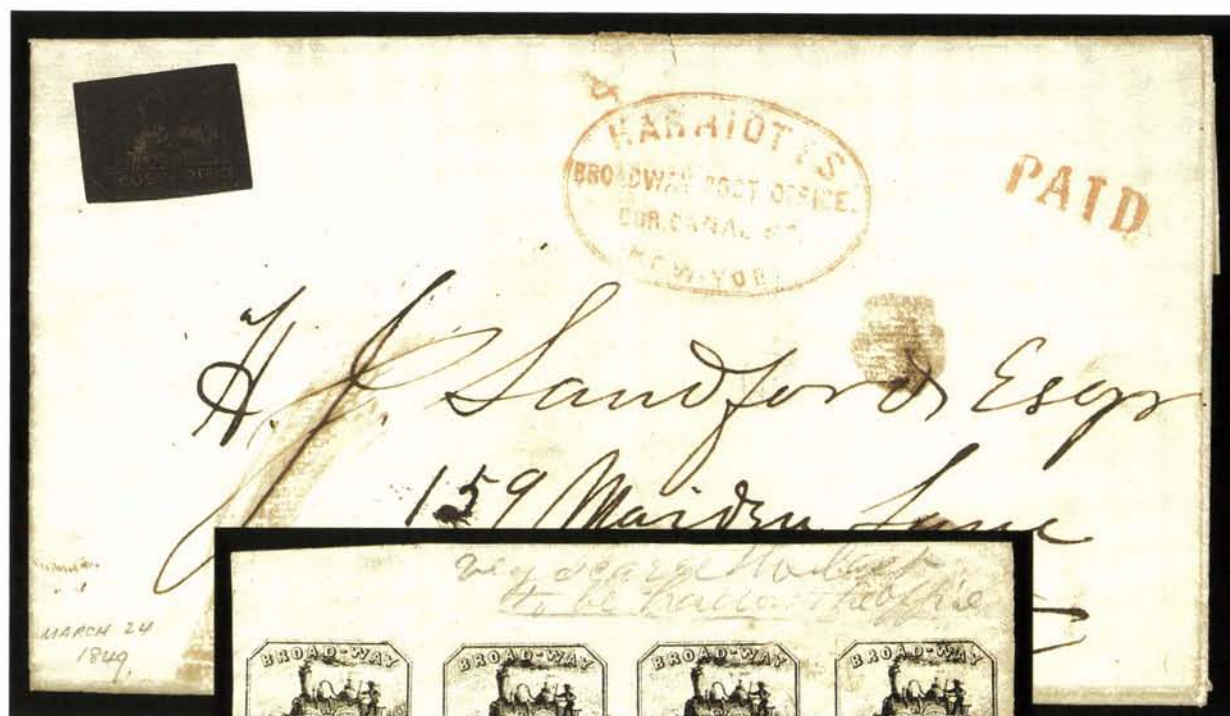 POST OFFICE
HARRIOTT'S
BROADWAY POST OFFICE.
COR. CANAL ST.
NEW-YORK
PAID
H. J. Sandford Esqr
159 Maiden Lane
MARCH 24
1849
very scarce
to be had at the office
BROAD-WAY BROAD-WAY BROAD-WAY BROAD-WAY